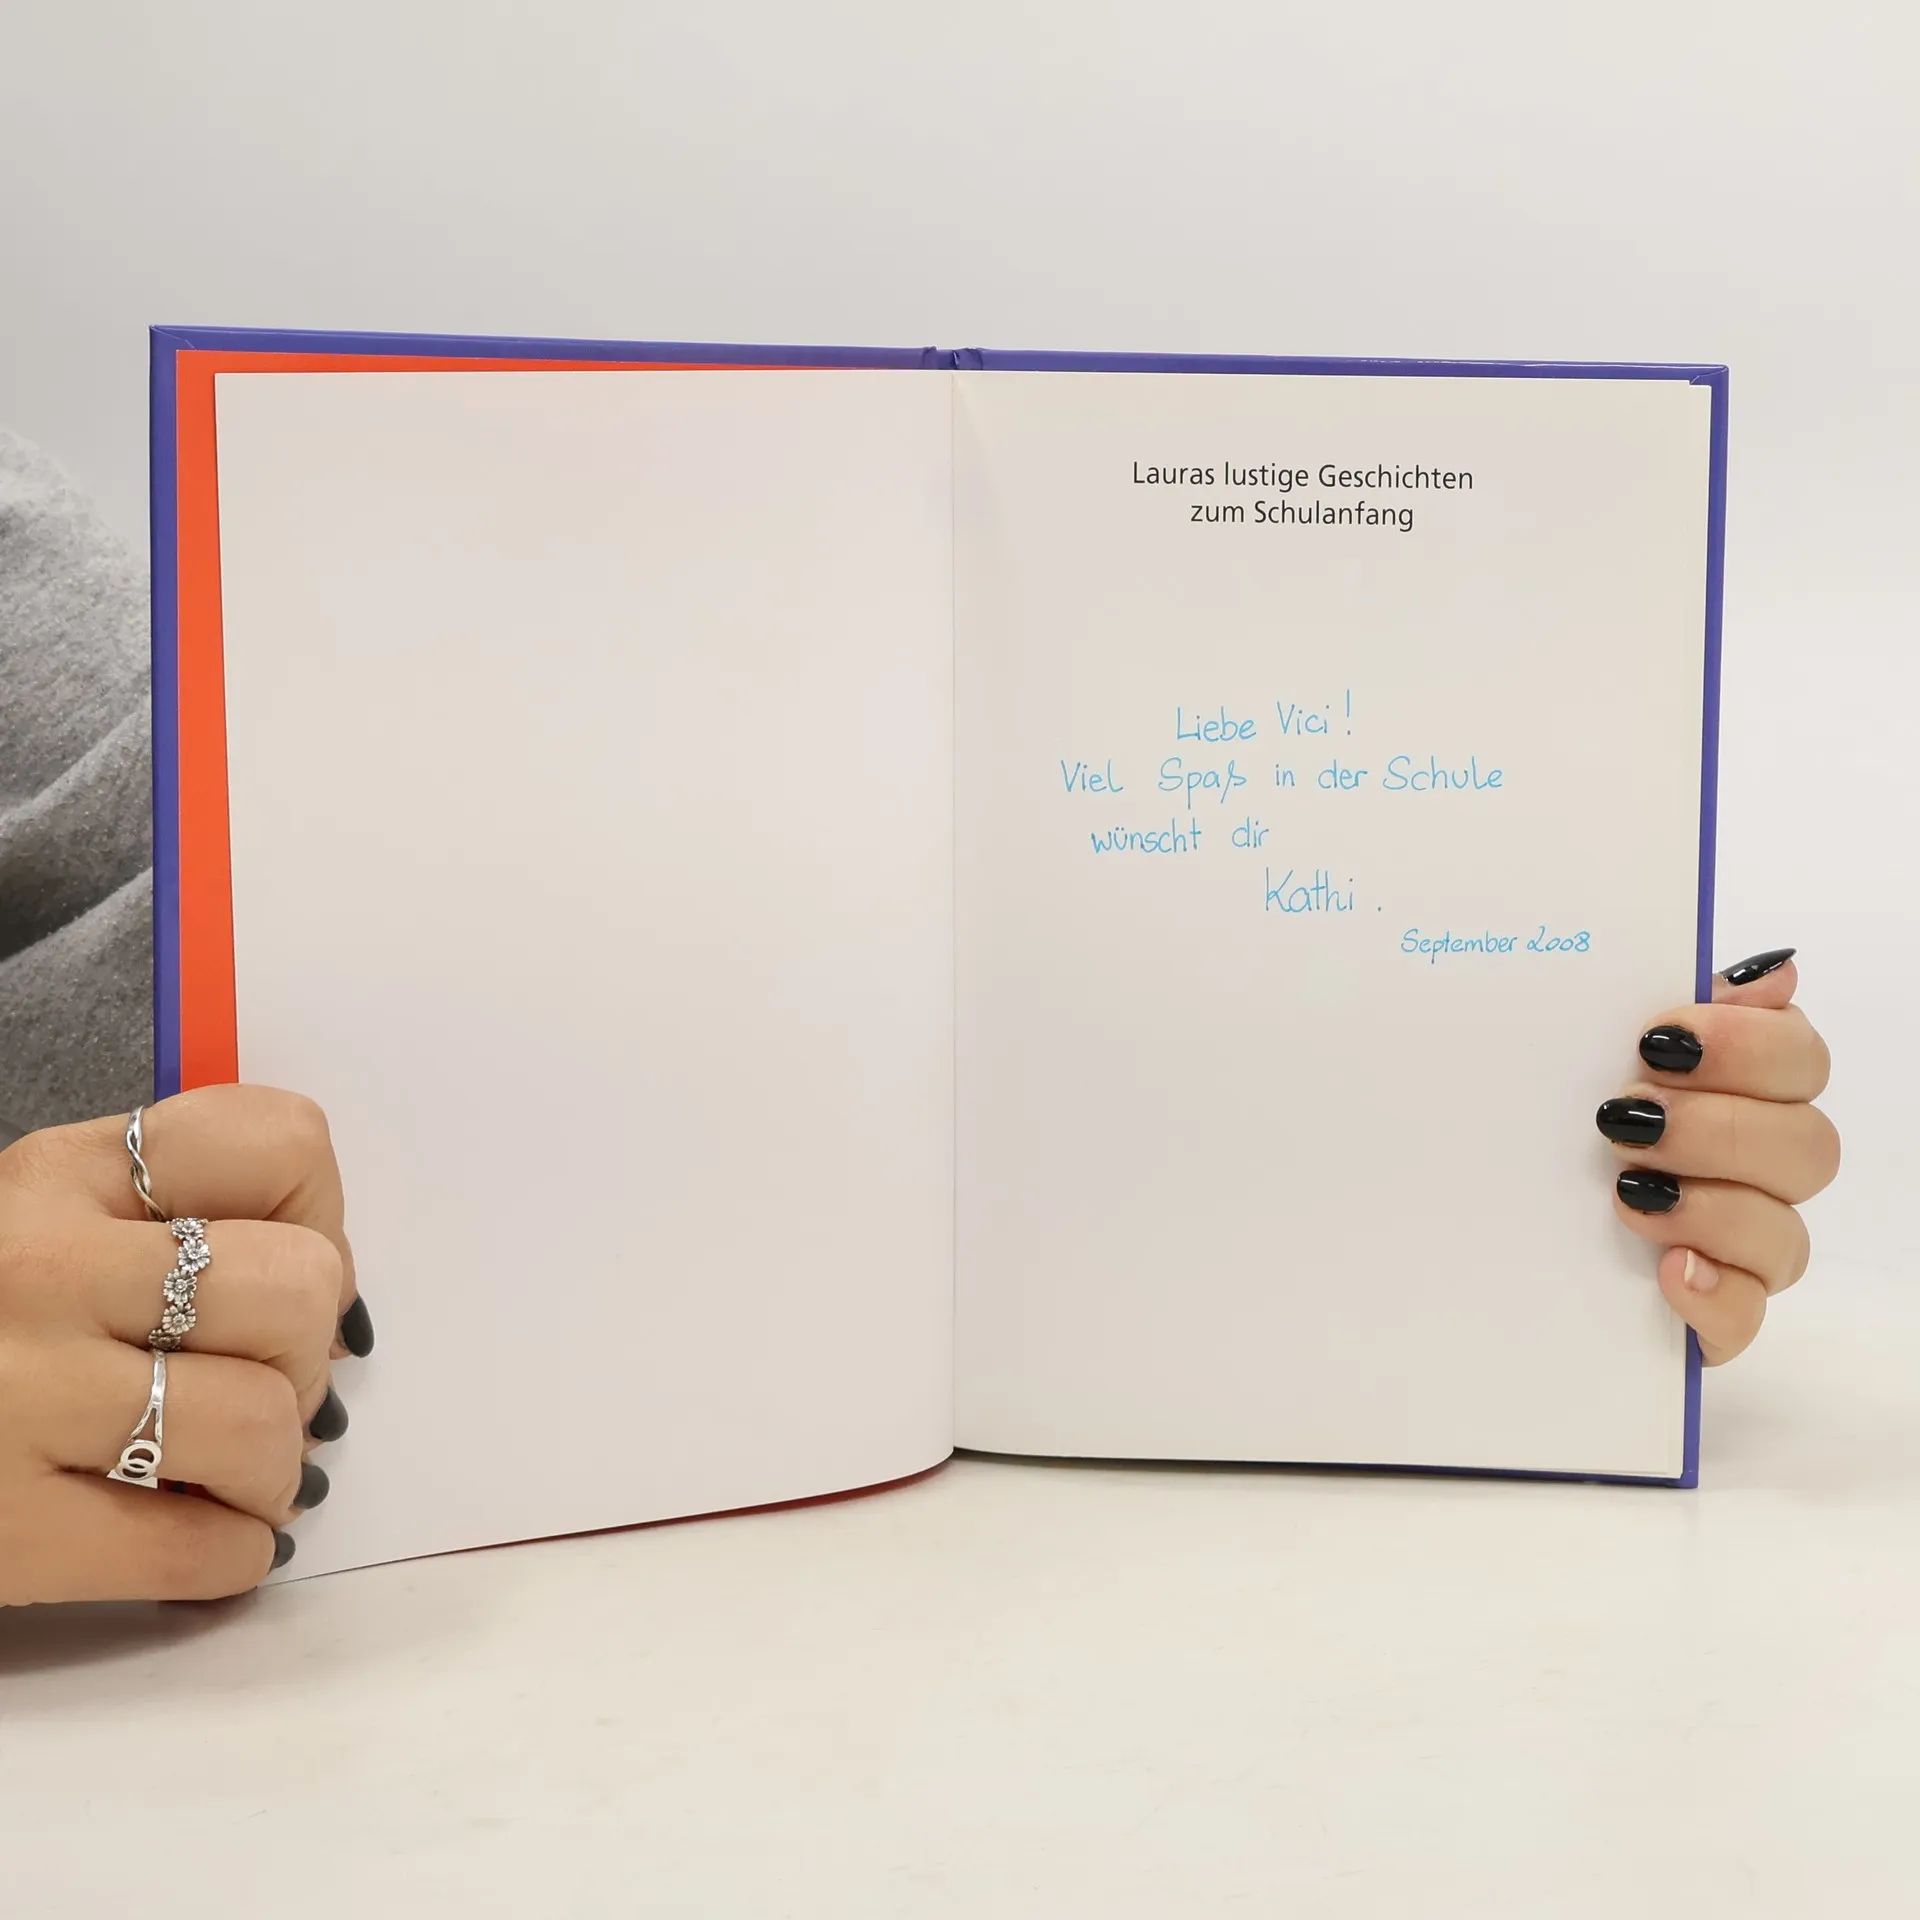 Lauras lustige Geschichten
zum Schulanfang
Liebe Vici!
Viel Spaß in der Schule
wünscht dir
Kathi.
September 2008